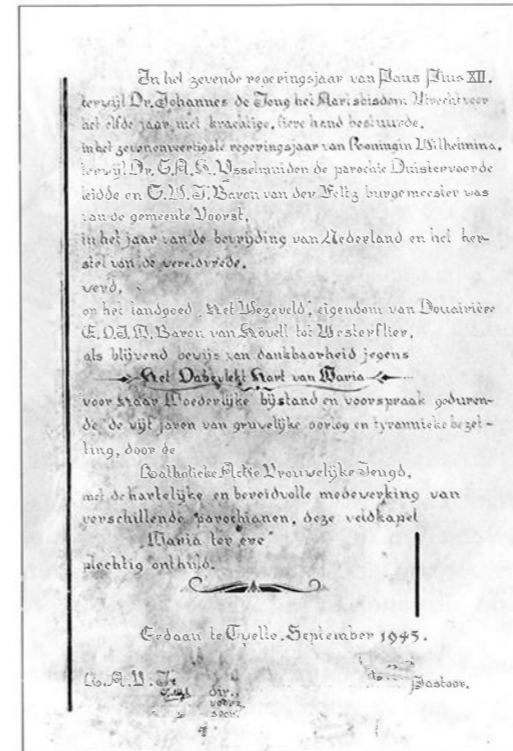 In het zevende regeringsjaar van Paus Pius XII.
terwijl Dr. Johannes de Jong het Aartsbisdom Utrecht voor
het elfde jaar met krachtige, fiere hand bestuurde,
in het zevenenveertigste regeringsjaar van Koningin Wilhelmina,
terwijl Dr. G.A.H. Ysselmuiden de parochie Duistervoorde
leidde en C.W.J. Baron van der Feltz burgemeester was
van de gemeente Voorst,
in het jaar van de bevrijding van Nederland en het her-
stel van de wereldvrede,
werd,
op het landgoed „Het Wezeveld", eigendom van Douairière
E.O.J.M. Baron van Hövell tot Westerflier,
als blijvend bewijs van dankbaarheid jegens
Het Onbevlekt Hart van Maria
voor Haar Moederlijke bijstand en voorspraak geduren-
de de vijf jaren van gruwelijke oorlog en tyrannieke bezet-
ting, door de
Katholieke Actie Vrouwelijke Jeugd,
met de hartelijke en bereidvolle medewerking van
verschillende parochianen, deze veldkapel
„Maria ter ere"
plechtig onthuld.
Gedaan te Twello, September 1945.
K.A.V.J.
Pastoor.
dir.,
voorz.
secr.